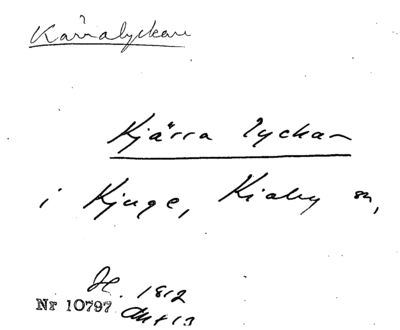 Kärralyckan
Kjärra lyckan
i Kjuge, Kiaby sn,
H. 1812
Nr 10797 Akt 13